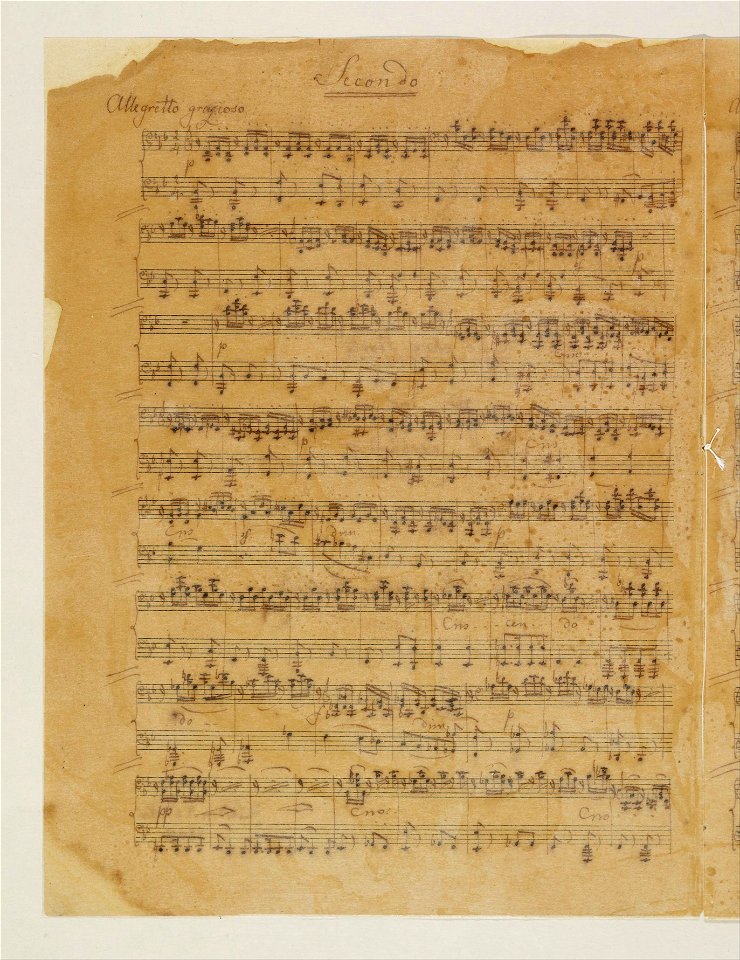 Secondo
Allegretto grazioso
p
p
p
p
Cres
dim
p
Cres - - cen - do
do
dim
p
pp
Cres
Cres